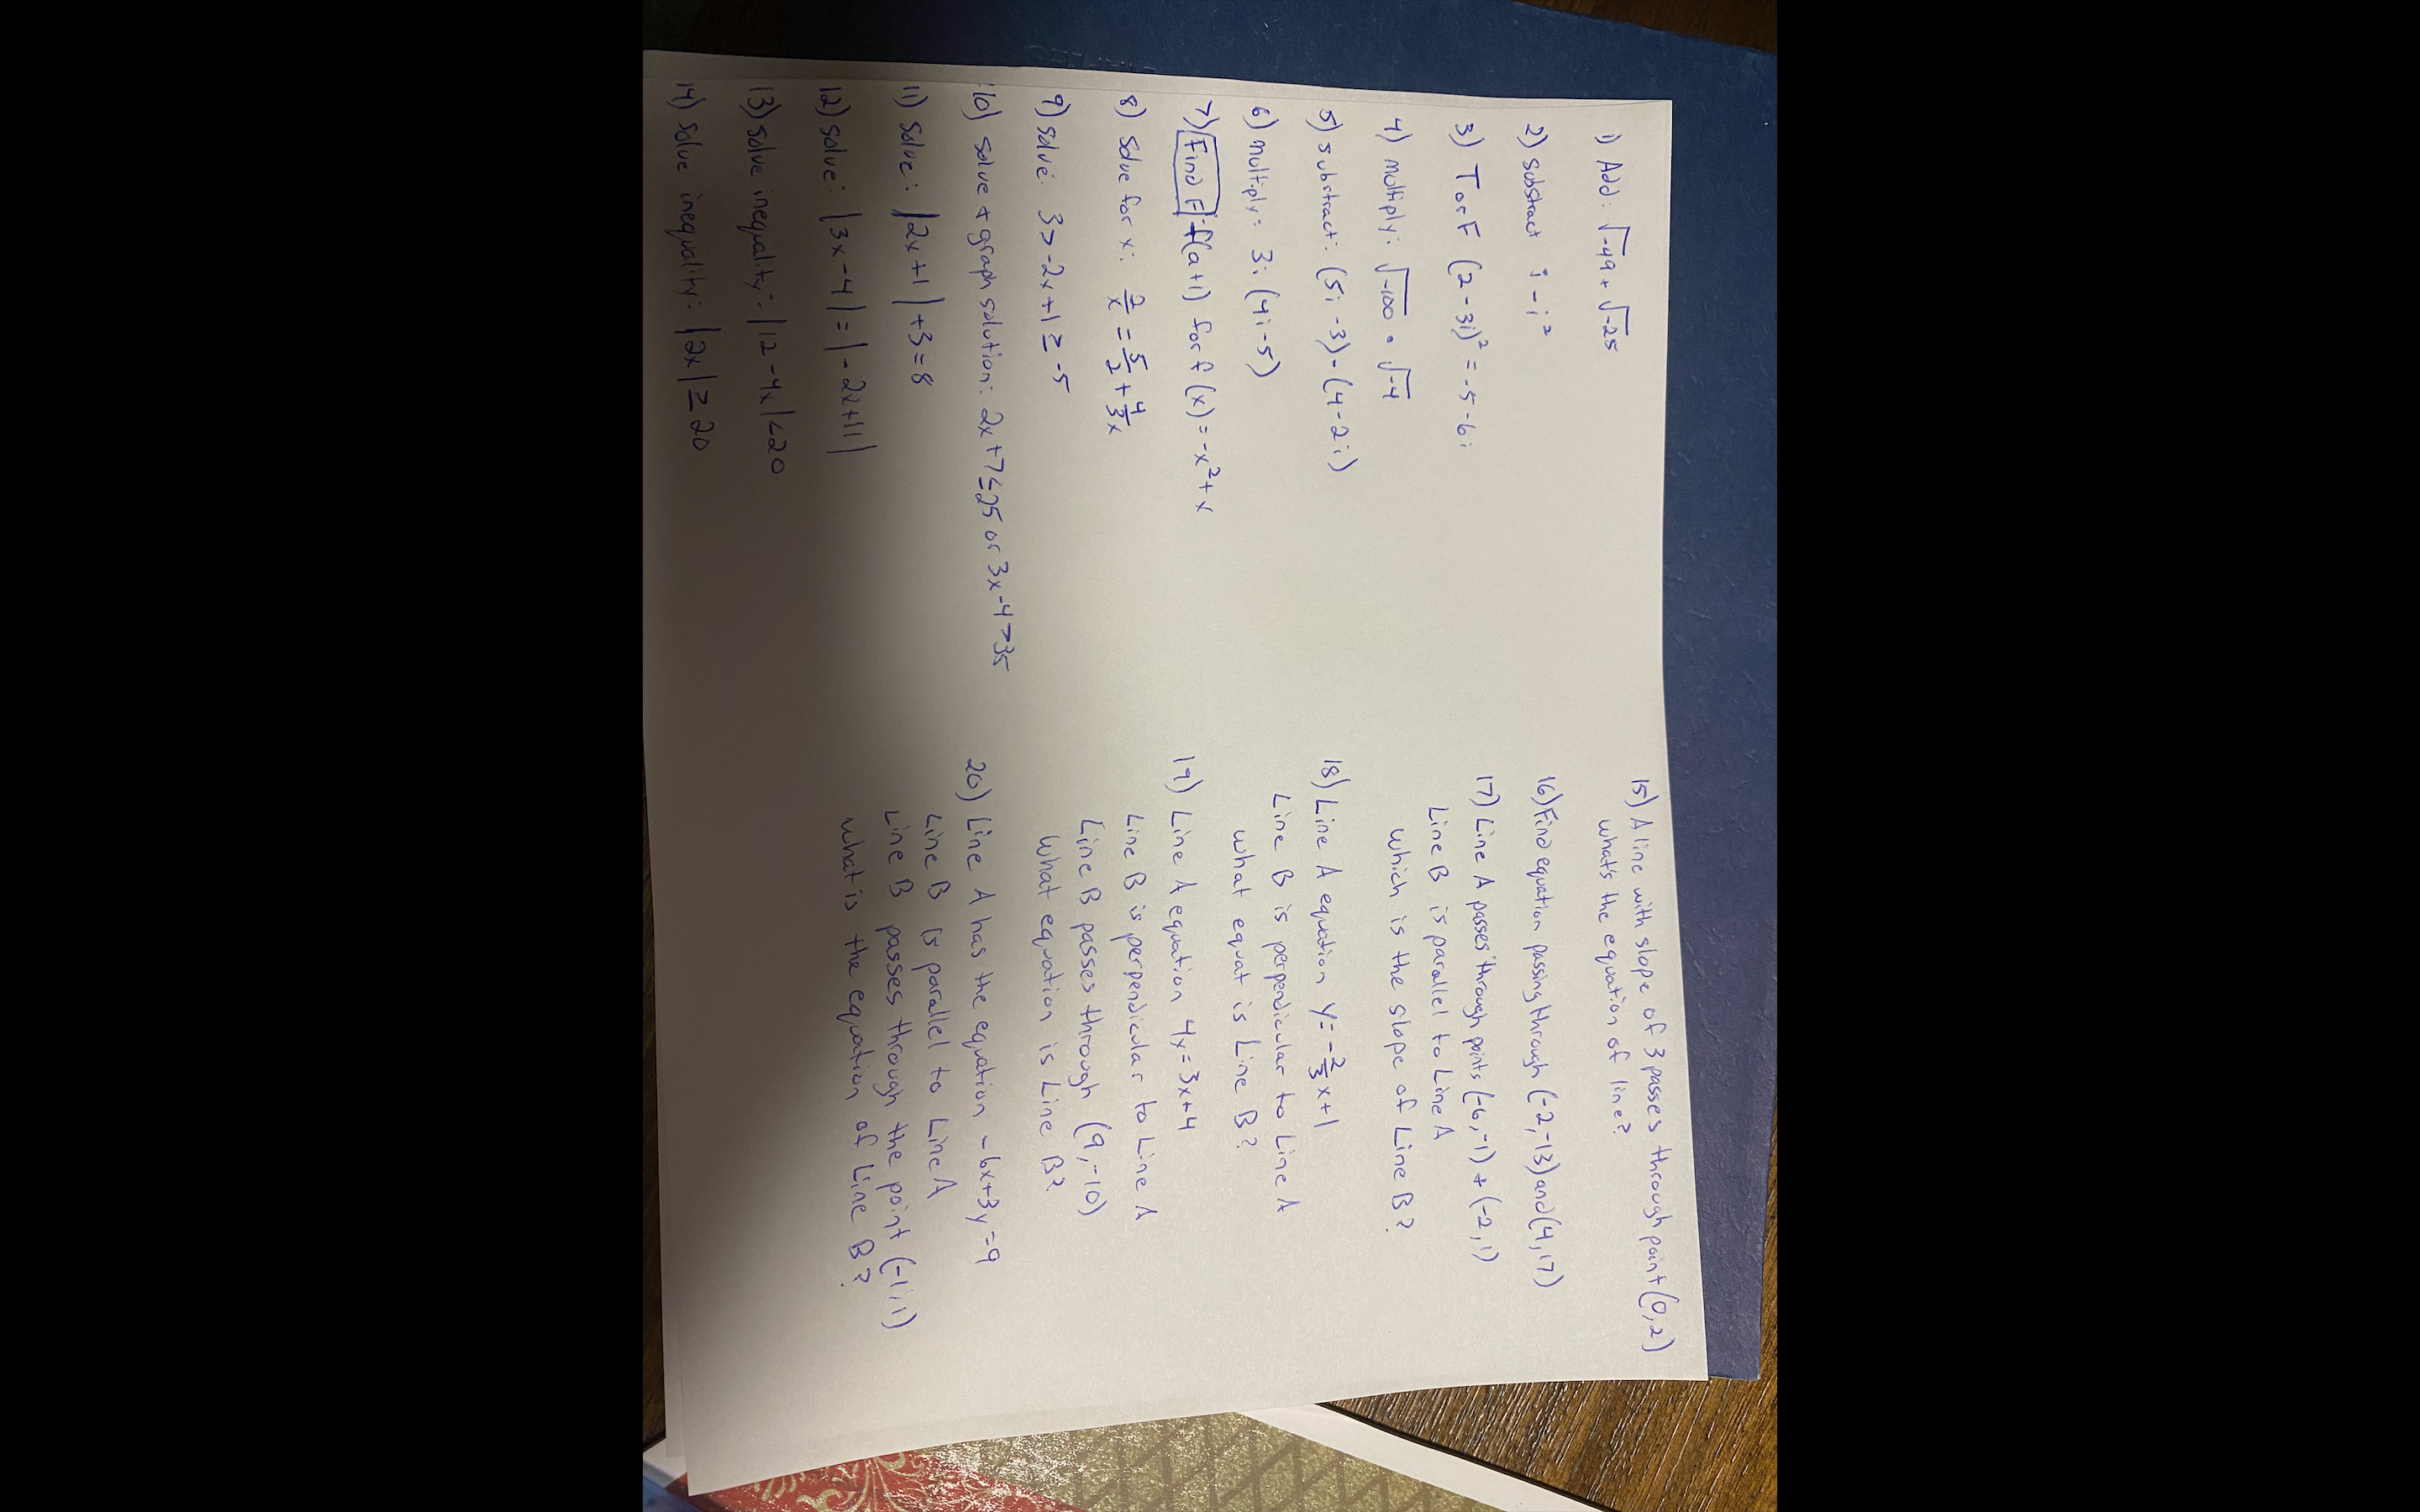 1) Add: √-49 + √-25
2) substract i - i²
3) T or F (2 - 3i)² = -5 - 6i
4) multiply: √-100 • √-4
5) substract: (5i - 3) - (4 - 2i)
6) multiply = 3i (4i - 5)
7) Find F f(a+1) for f(x) = -x² + x
8) solve for x: 2/x = 5/2 + 4/3x
9) solve: 3 > -2x + 1 ≥ -5
10) solve + graph solution: 2x + 7 ≤ 25 or 3x - 4 > 35
11) solve: |2x + 1| + 3 = 8
12) solve: |3x - 4| = |-2x + 11|
13) solve inequality: |12 - 4x| < 20
14) solve inequality: |2x| ≥ 20
15) A line with slope of 3 passes through point (0,2)
what's the equation of line?
16) Find equation passing through (-2,-13) and (4,17)
17) Line A passes through points (-6,-1) + (-2,1)
Line B is parallel to Line A
which is the slope of Line B?
18) Line A equation y = -2/3 x + 1
Line B is perpendicular to Line A
what equat is Line B?
19) Line A equation 4y = 3x + 4
Line B is perpendicular to Line A
Line B passes through (9,-10)
What equation is Line B?
20) Line A has the equation -6x + 3y = 9
Line B is parallel to Line A
Line B passes through the point (-1,1)
what is the equation of Line B?